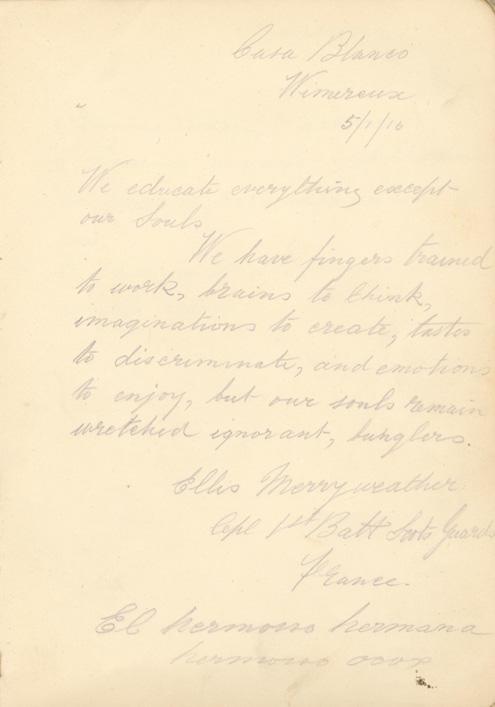 Casa Blanco
Wimereux
5/1/16
We educate everything except
our Souls
We have fingers trained
to work, brains to think,
imaginations to create, tastes
to discriminate, and emotions
to enjoy, but our souls remain
wretched ignorant, bunglers.
Ellis Merryweather.
Cpl 1st Batt Scots Guards
France.
El hermoso hermana
hermoso